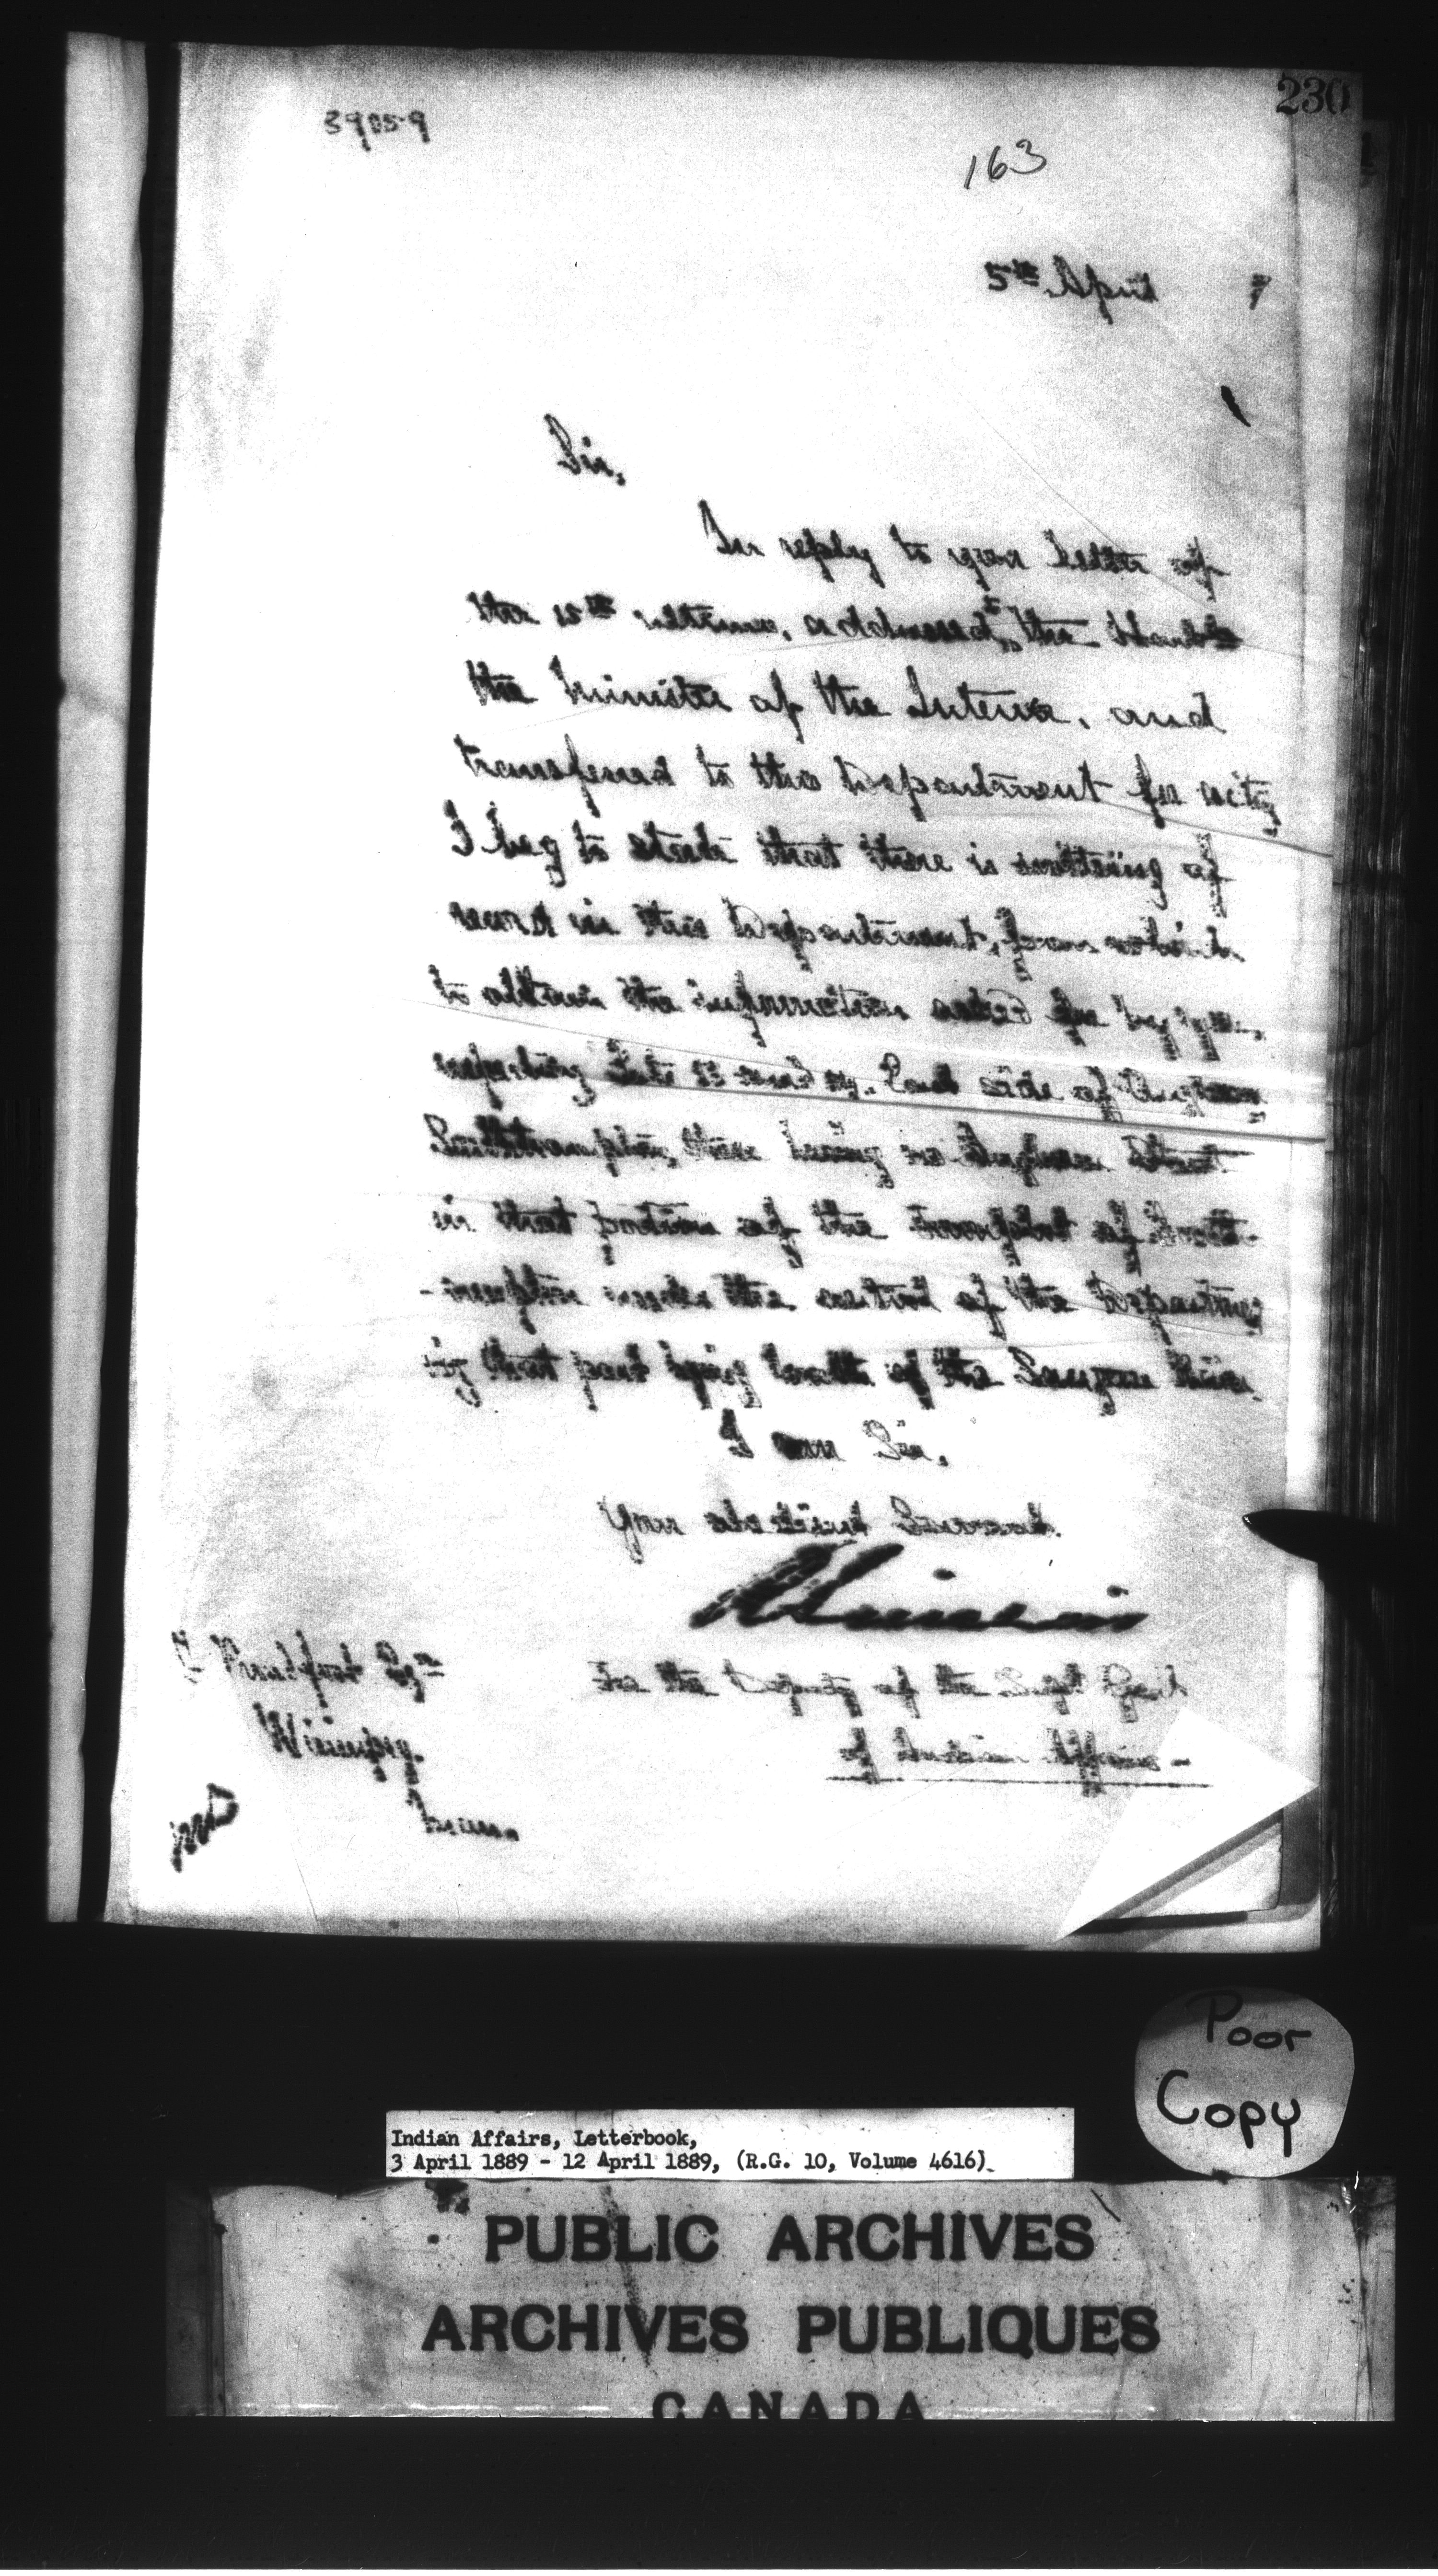 230
39059
163
5th April 9
Sir,
In reply to your letter of
the 12th ultimo, addressed to the
the Minister of the Interior, and
transferred to this Department for
I beg to state that there is nothing of
record in this Department, from which
to obtain the information asked for by you,
respecting Lots 23 and East side of
Southampton, there being no Street
in that portion of the Townplot of South-
-ampton under the control of the Department
that part lying North of the Saugeen River
I am Sir,
Your obedient Servant.
Esqre
For the Deputy of the Supt Genl
Winnipeg.
of Indian Affairs -
Man.
Poor
Copy
Indian Affairs, Letterbook,
3 April 1889 - 12 April 1889, (R.G. 10, Volume 4616)
PUBLIC ARCHIVES
ARCHIVES PUBLIQUES
CANADA